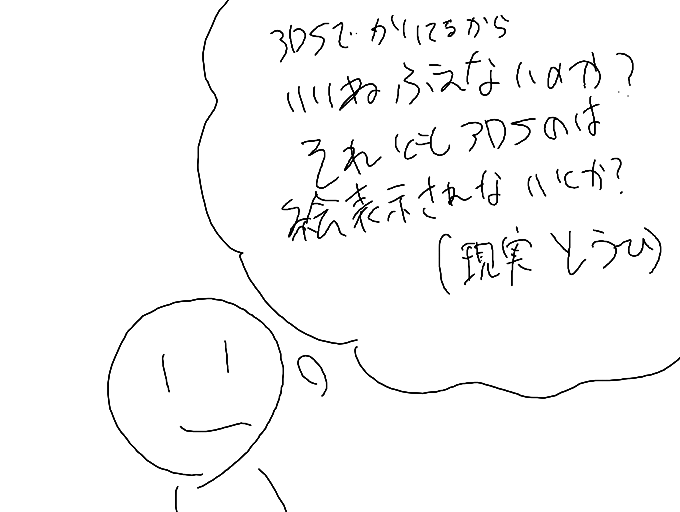 3DSで かいてるから
いいね ふえないのか?
それとも 3DSのは
絵表示されな いとか?
(現実 とうひ)